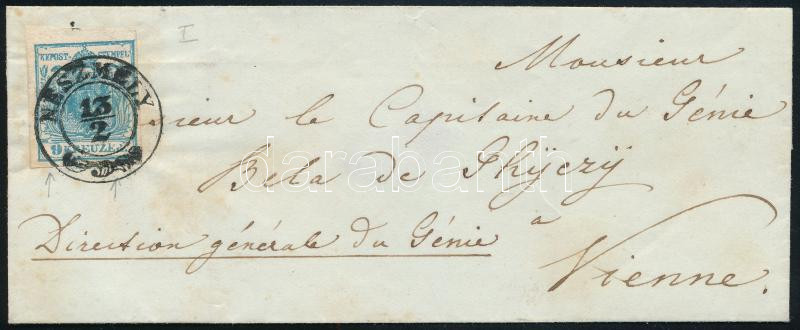 I
KKPOST-STEMPEL
NESZMÉLY
13/2
9 KREUZER
Monsieur
sieur le Capitaine du Génie
Bela de
à
Vienne.
Direction générale du Génie
darabanth